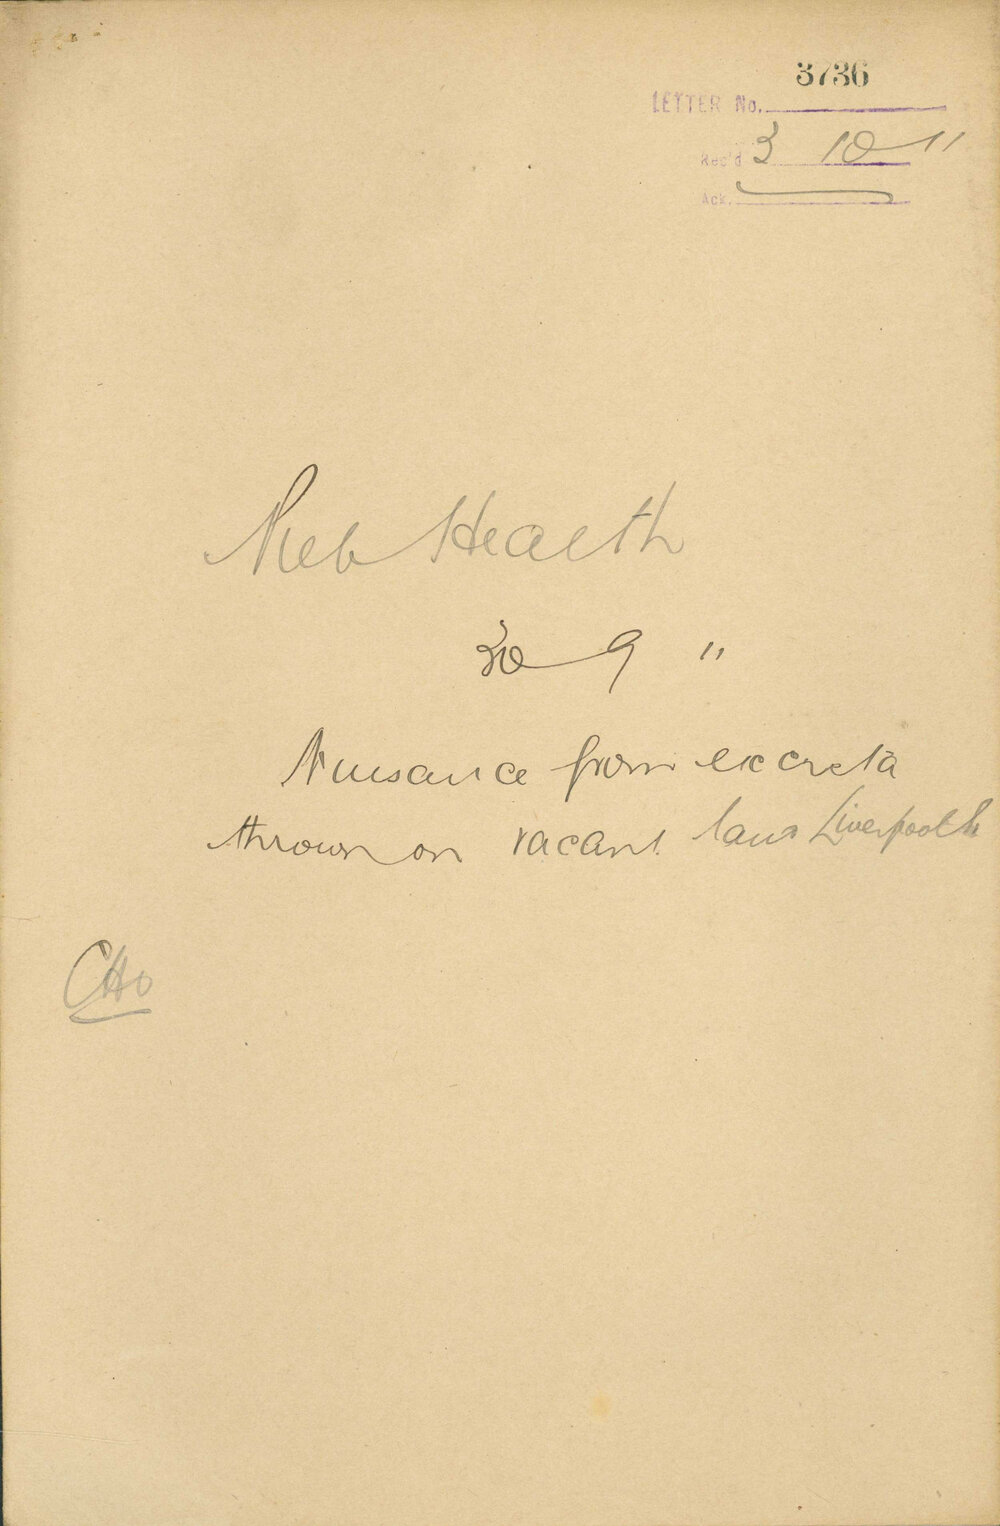 3736
LETTER No.
Rec'd 3 10 11
Ack.
Pub Health
30 9 11
Nuisance from excreta
thrown on vacant land Liverpool St
CHO